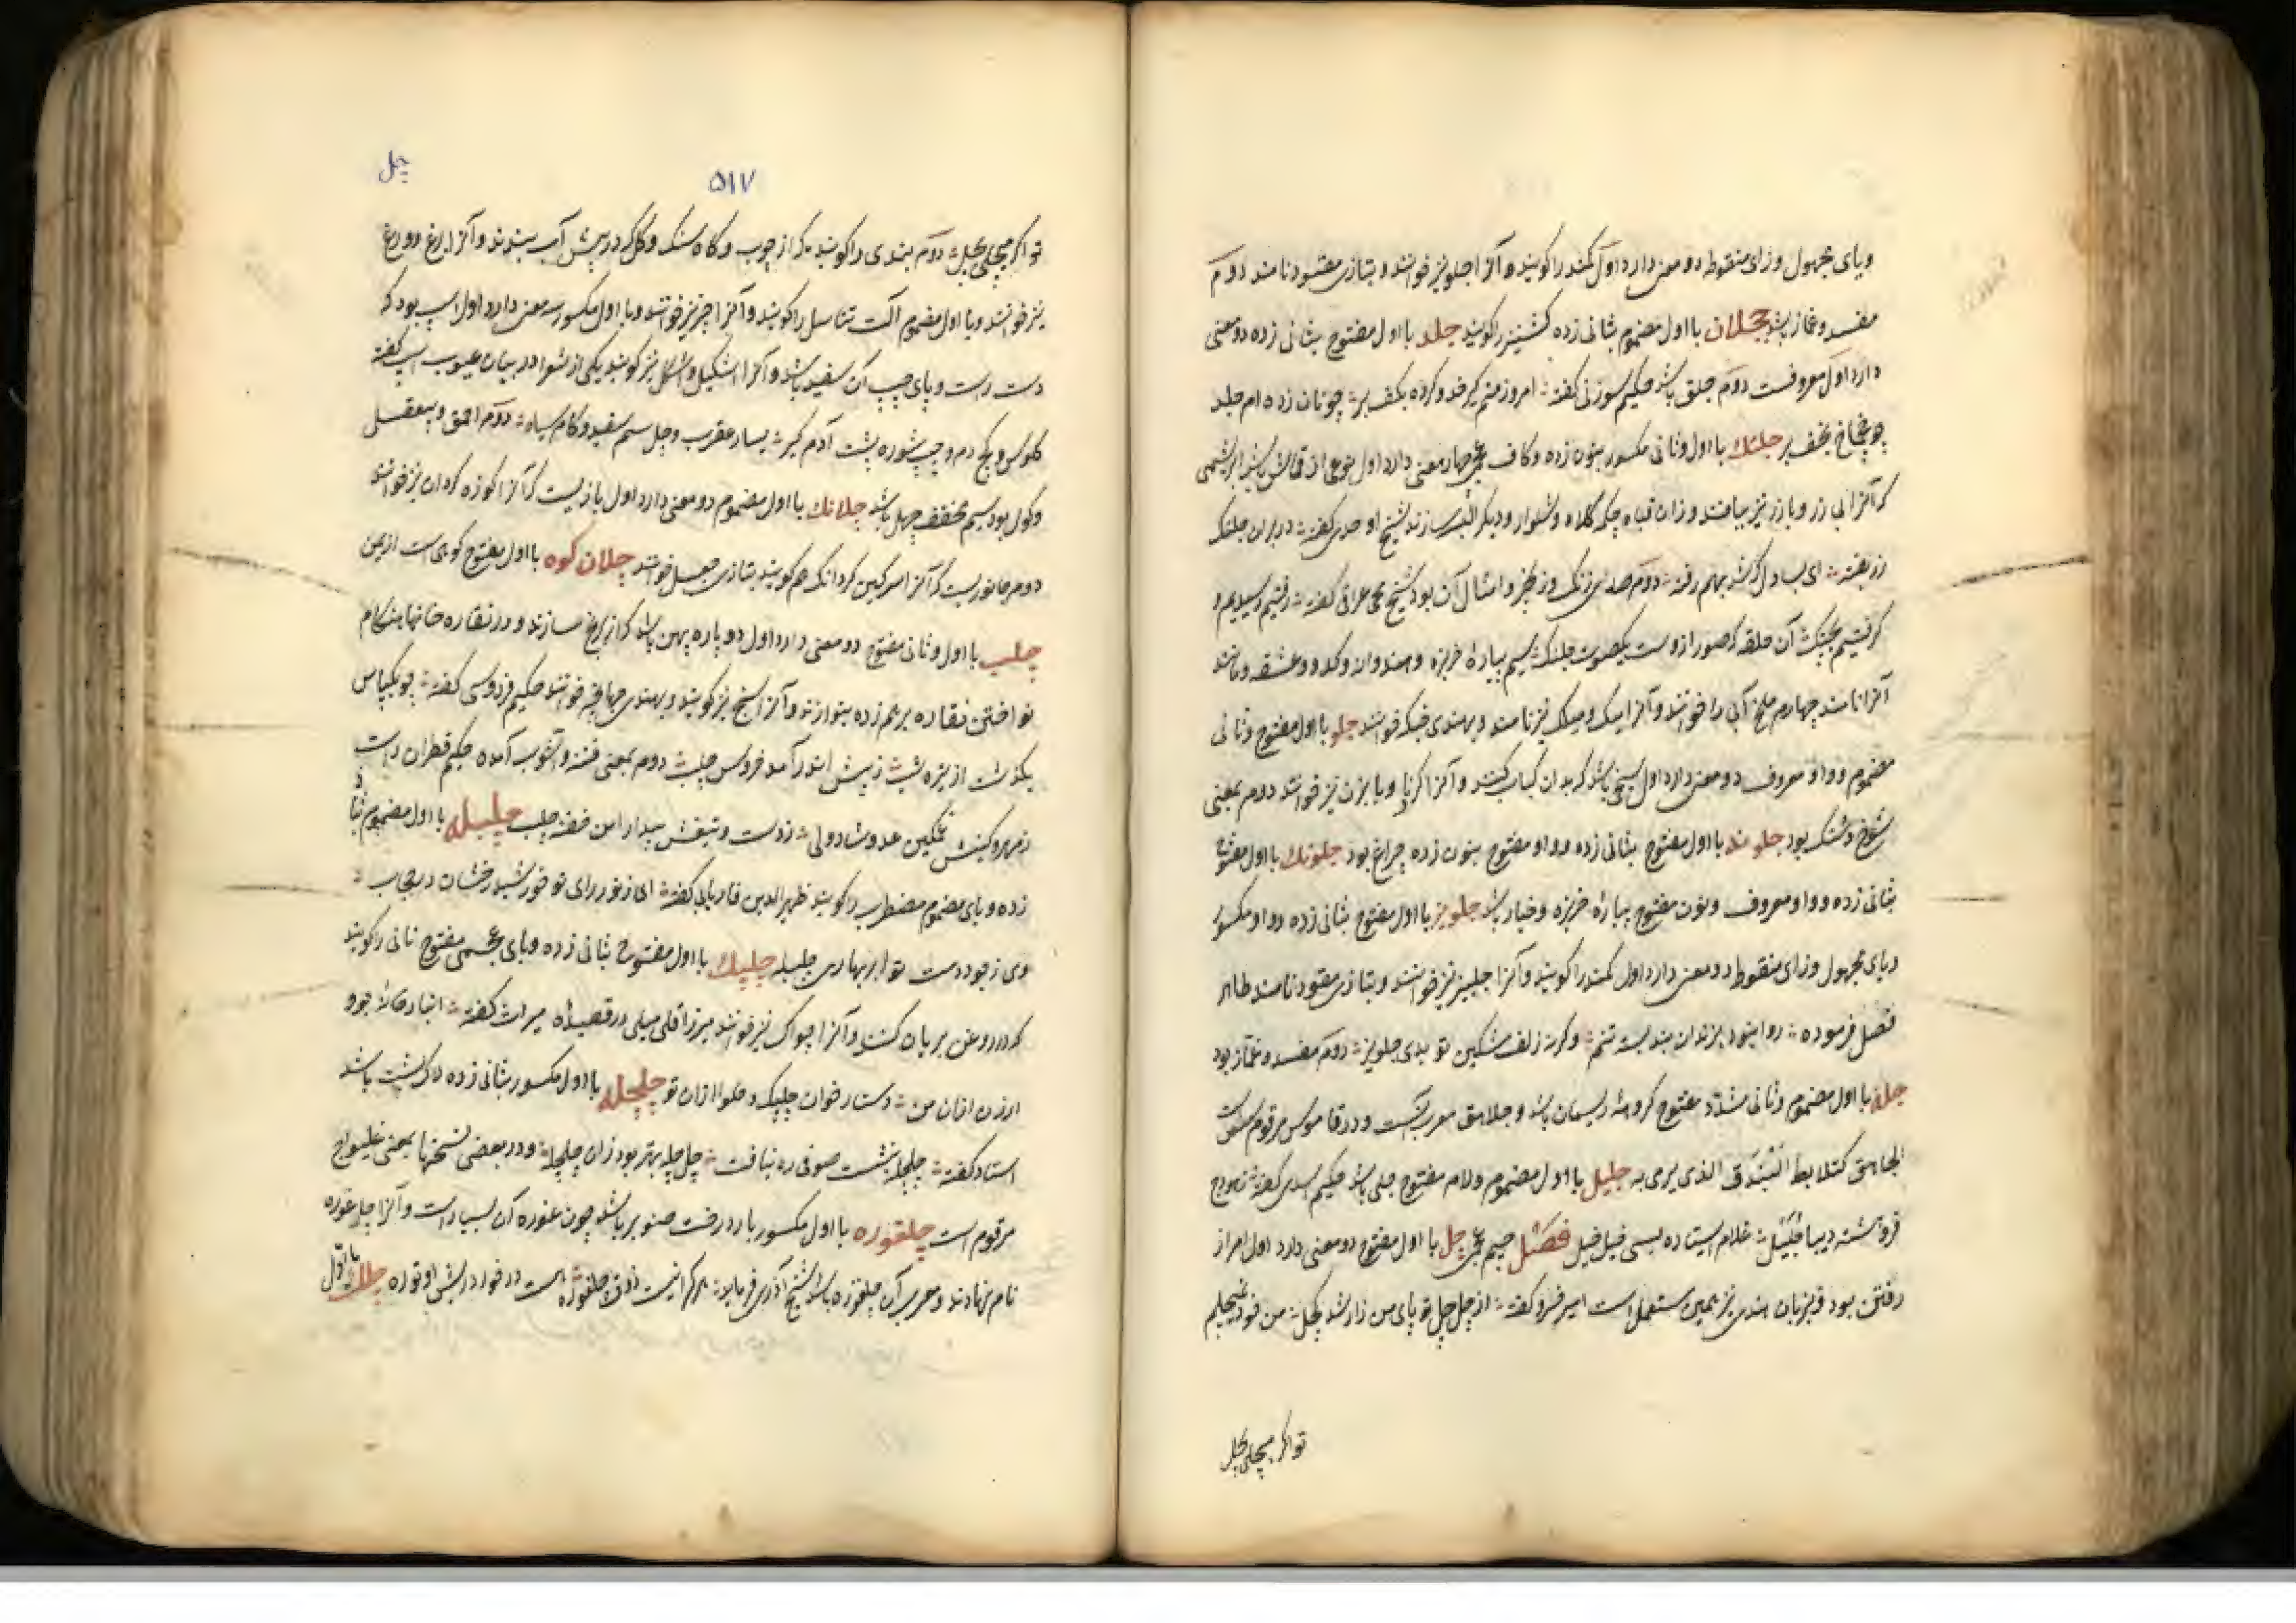 ویای مجهول وزای منقوطه دو معنی دارد اول کمند را کویند و آنرا جلویز خوانند و بتازی مقود نامند دوم
مفسد و غماز باشد جلان با اول مضموم بثانی زده کشنیز را کویند جلد با اول مفتوح بثانی زده دو معنی
دارد اول معروفست دوم جلق باشد حکیم سوزنی کفته امروز منم کرفته و کرده بکف بر چونان زده ام جلد
بکف بر جلنک با اول و ثانی مکسور بنون زده و کاف عجمی چهار معنی دارد اول نوعی از قماش باشد ابریشمی
که آنرا بی زر و با زر نیز ببافند و زان قبا و چکمه کلاه و شلوار و دیکر البسه سازند شیخ اوحدی کفته در بر آن جلنک
زر بفته ای بسا دل که شد بهم رفته دوم صدای زنک و زنجیر و امثال آن بود شیخ عراقی کفته رفتیم و رسیدیم و
کرفتیم بچنک آن حلقه که صور ازوست یکصوت جلنک سیم بیارهٔ خربزه و هندوانه و کدو و عشقه و مانند
آنرا نامند چهارم ملخ آبی را خوانند و آنرا میک و میک نیز نامند و بهندی جهینکه خوانند جلو با اول مفتوح و ثانی
مضموم و واو معروف دو معنی دارد اول سیخی باشد که بدان کباب کنند و آنرا کردنا و بابزن نیز خوانند دوم بمعنی
شوخ و شنک بود جلوند با اول مفتوح بثانی زده و واو مفتوح بنون زده چراغ بود جلونک با اول مفتوح
بثانی زده و واو معروف و نون مفتوح بیارهٔ خربزه و خیار باشد جلویز با اول مفتوح بثانی زده و واو مکسور
ویای مجهول وزای منقوطه دو معنی دارد اول کمند را کویند و آنرا جلیز نیز خوانند و بتازی مقود نامند طاهر
فضل فرموده روا نبود بزندان بند بسته تنم وکرنه زلف مشکین تو بدی جلویز دوم مفسد و غماز بود
جله با اول مضموم و ثانی مشدد مفتوح کروهه ریسمان باشد و جلاهق معرب آنست و در قاموس مرقوم است
الجلاهق کعلابط البُندق الذی یرمی به جلیل با اول مضموم و لام مفتوح جلی باشد حکیم اسدی کفته
فروهشته دیبا جُلَیل غلام ایستاده بسی خیل خیل فصل جیم عجمی چل با اول مفتوح دو معنی دارد اول امر از
رفتن بود و بزبان هندی نیز بهمین مستعمل است امیر خسرو کفته از چل چل تو پای من زار شد کچل من خود نمیچلم
تو اکر میچلی بچل
۵۱۷
چل
تو اکر میچلی بچل دوم بندی را کویند که از چوب و کاه و سنک و کل که در پیش آب ببندند و آنرا برغ و ورغ
نیز خوانند و با اول مضموم آلت تناسل را کویند و آنرا چر نیز خوانند و با اول مکسور سه معنی دارد اول اسپی بود که
دست راست و پای چپ آن سفید باشد و آنرا اشکیل و اشکل نیز کویند یکی از شعرا در بیان عیوب اسپ کفته
کلوس و کج دم و چپ شوره پشت آدم کیر یسار عقرب و چل سم سفید و کام سیاه دوم احمق و بیعقل
و کول بود سیم مخفف چهل باشد چلانک با اول مضموم دو معنی دارد اول بازیست که آنرا کوزه کردان نیز خوانند
دوم جانوریست که آنرا سرکین کردانک هم کویند بتازی جعل خوانند چلان کوه با اول مفتوح کوهی است از یمن
چلب با اول و ثانی مفتوح دو معنی دارد اول دو پاره پهن باشد که از برنج سازند و در نقاره خانها بهنکام
نواختن نقاره بر هم زده بنوازند و آنرا سنج نیز کویند و بهندی جهانجه خوانند حکیم فردوسی کفته چو یکپاس
بکذشت از تیره شب ز پیش اندر آمد خروس چلب دوم بمعنی فتنه و آشوب آمده حکیم قطران راست
ز مهر و کینش غمکین عدو و شاد ولی ز دست و تیغش بیدار امن خفته چلب چلبله با اول مضموم بثانی
زده و بای مضموم مضطرب را کویند ظهیر الدین فاریابی کفته ای ز نور رای تو خورشید رخشان در حجاب
وی ز جود دست تو ابر بهاری چلبله چلپک با اول مفتوح بثانی زده و بای عجمی مفتوح نانی را کویند
که در روغن بریان کنند و آنرا چواک نیز خوانند میرزا قلی میلی در قصیده میراث کفته انبار کاه و جو
ارزن ازان من دستار خوان چلپک و حلوا ازان تو چلچله با اول مکسور بثانی زده لاک پشت باشد
استاد کفته چلچله نشست صوفی ره نیافت چل چله بهتر بود زان چلچله و در بعضی نسخها بمعنی غلیواج
مرقوم است چلغوزه با اول مکسور بار درخت صنوبر باشد چون غوزه آن بسیار است و آنرا چل غوزه
نام نهادند و معرب آن جلغوزه باشد شیخ آذری فرماید هر کرا نیست ذوق چلغوزه هست در خورد ریش او توزه چلک با اول